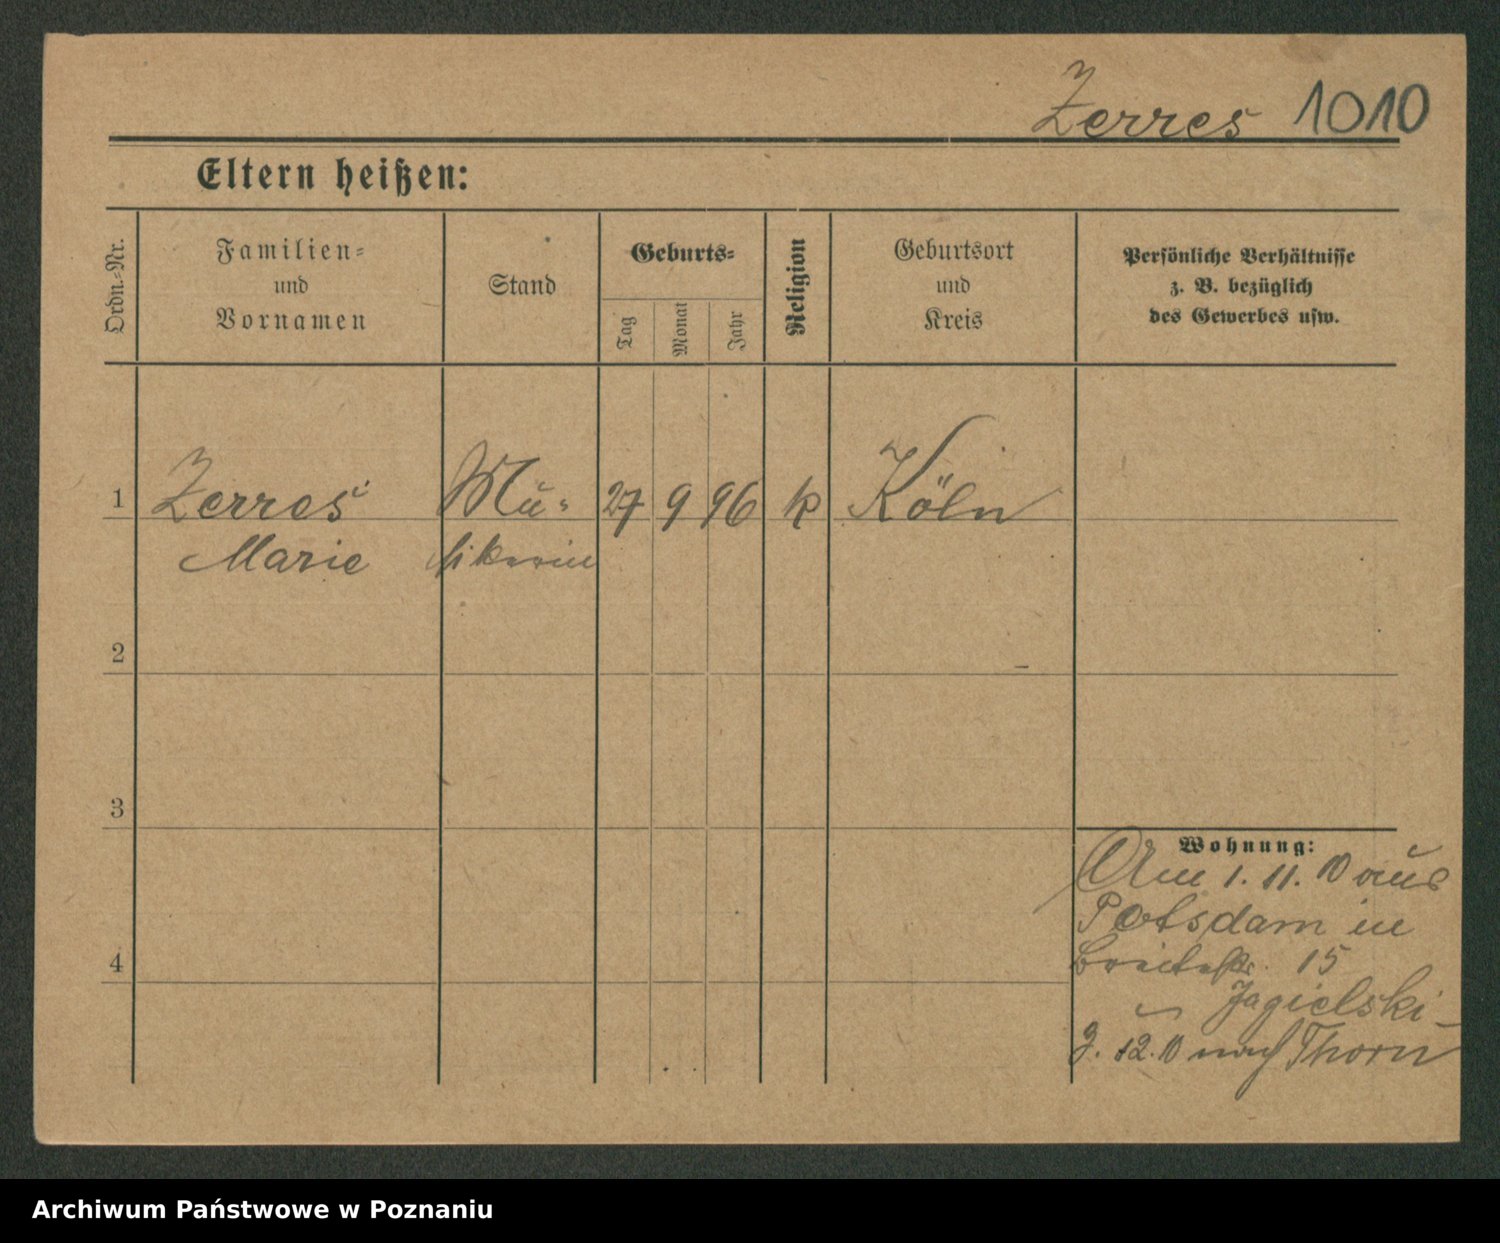 Zerres 1010
Eltern heißen:
Ordn.-Nr.
Familien-
und
Vornamen
Stand
Geburts-
Tag
Monat
Jahr
Religion
Geburtsort
und
Kreis
Persönliche Verhältnisse
z. B. bezüglich
des Gewerbes usw.
1 Zerres Mu- 27 9 96 k Köln
Marie sikerin
2
3
Wohnung:
Am 1. 11. 10 aus
Potsdam in
Breitestr. 15
Jagielski
4
12. 10 nach Thorn
Archiwum Państwowe w Poznaniu